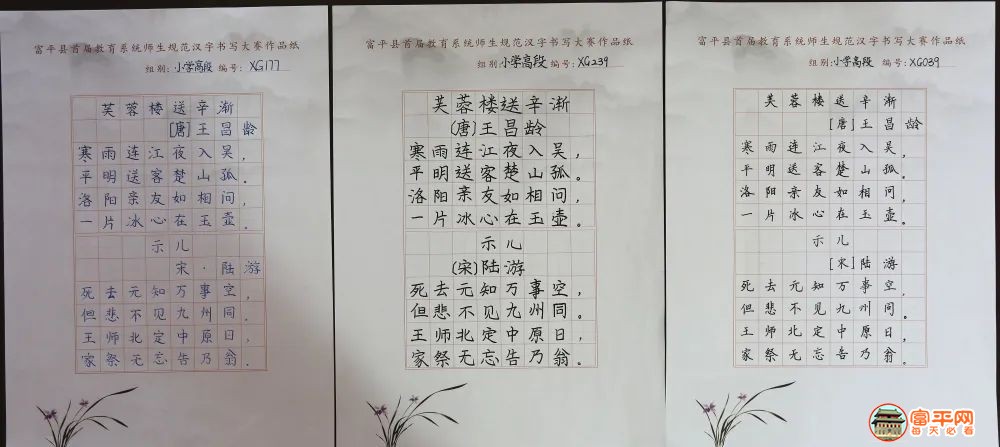 富平县首届教育系统师生规范汉字书写大赛作品纸
组别:小学高段 编号:XG177
芙蓉楼送辛渐
[唐]王昌龄
寒雨连江夜入吴,
平明送客楚山孤。
洛阳亲友如相问,
一片冰心在玉壶。
示儿
宋·陆游
死去元知万事空,
但悲不见九州同。
王师北定中原日,
家祭无忘告乃翁.
富平县首届教育系统师生规范汉字书写大赛作品纸
组别:小学高段 编号:XG239
芙蓉楼送辛渐
(唐)王昌龄
寒雨连江夜入吴,
平明送客楚山孤。
洛阳亲友如相问,
一片冰心在玉壶。
示儿
(宋)陆游
死去元知万事空,
但悲不见九州同。
王师北定中原日,
家祭无忘告乃翁。
富平县首届教育系统师生规范汉字书写大赛作品纸
组别:小学高段 编号:XG039
芙蓉楼送辛渐
[唐]王昌龄
寒雨连江夜入吴,
平明送客楚山孤。
洛阳亲友如相问,
一片冰心在玉壶。
示儿
[宋]陆游
死去元知万事空,
但悲不见九州同。
王师北定中原日,
家祭无忘告乃翁。
富平网
每天必看